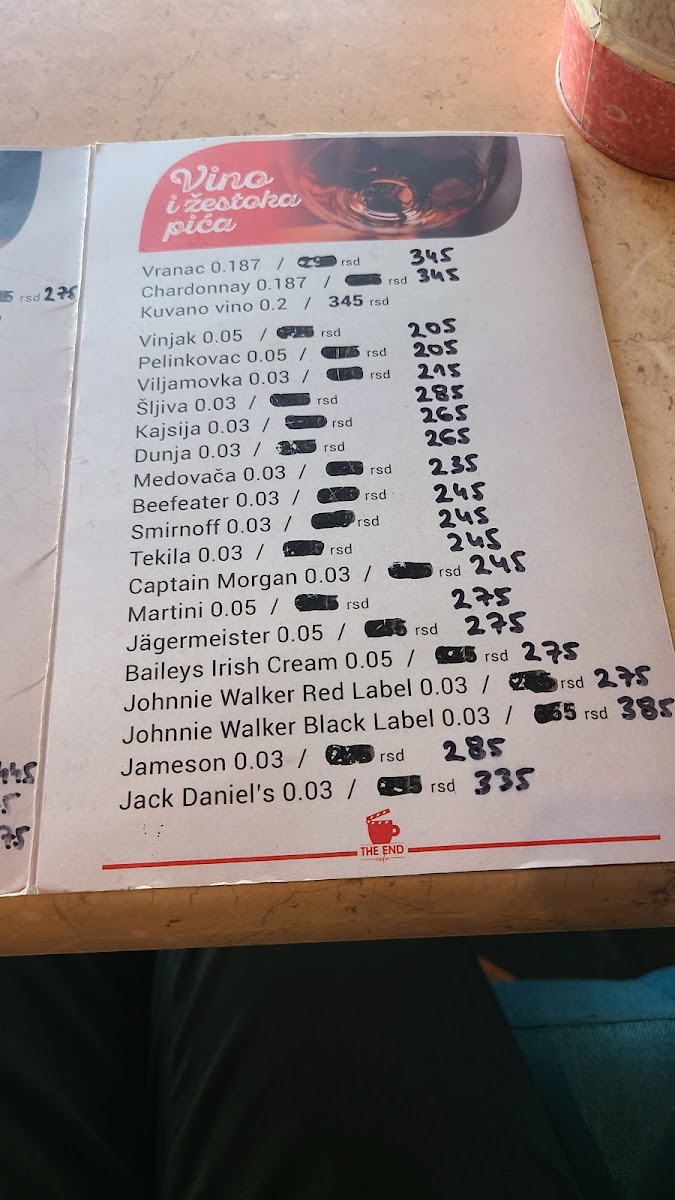 Vino
i žestoka
pića
Vranac 0.187 / rsd 345
Chardonnay 0.187 / rsd 345
Kuvano vino 0.2 / 345 rsd
Vinjak 0.05 / rsd 205
Pelinkovac 0.05 / rsd 205
Viljamovka 0.03 / rsd 215
Šljiva 0.03 / rsd 285
Kajsija 0.03 / rsd 265
Dunja 0.03 / rsd 265
Medovača 0.03 / rsd 235
Beefeater 0.03 / rsd 245
Smirnoff 0.03 / rsd 245
Tekila 0.03 / rsd 245
Captain Morgan 0.03 / rsd 245
Martini 0.05 / rsd 275
Jägermeister 0.05 / rsd 275
Baileys Irish Cream 0.05 / rsd 275
Johnnie Walker Red Label 0.03 / rsd 275
Johnnie Walker Black Label 0.03 / rsd 385
Jameson 0.03 / rsd 285
Jack Daniel's 0.03 / rsd 335
THE END
cafe
rsd 275